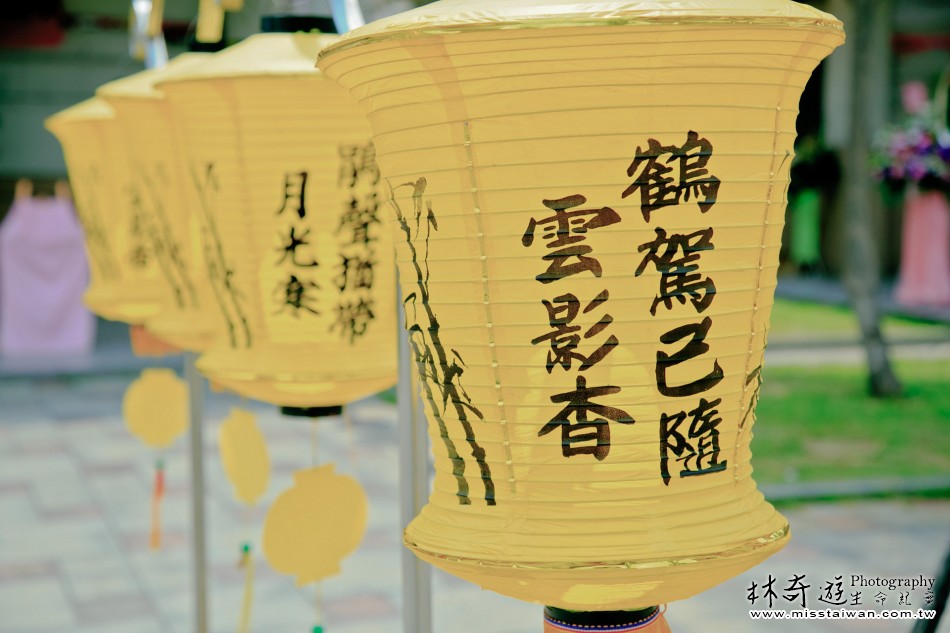 鶴駕已隨
雲影杳
鵑聲猶帶
月光寒
林奇遊
Photography
生命記事
www.misstaiwan.com.tw